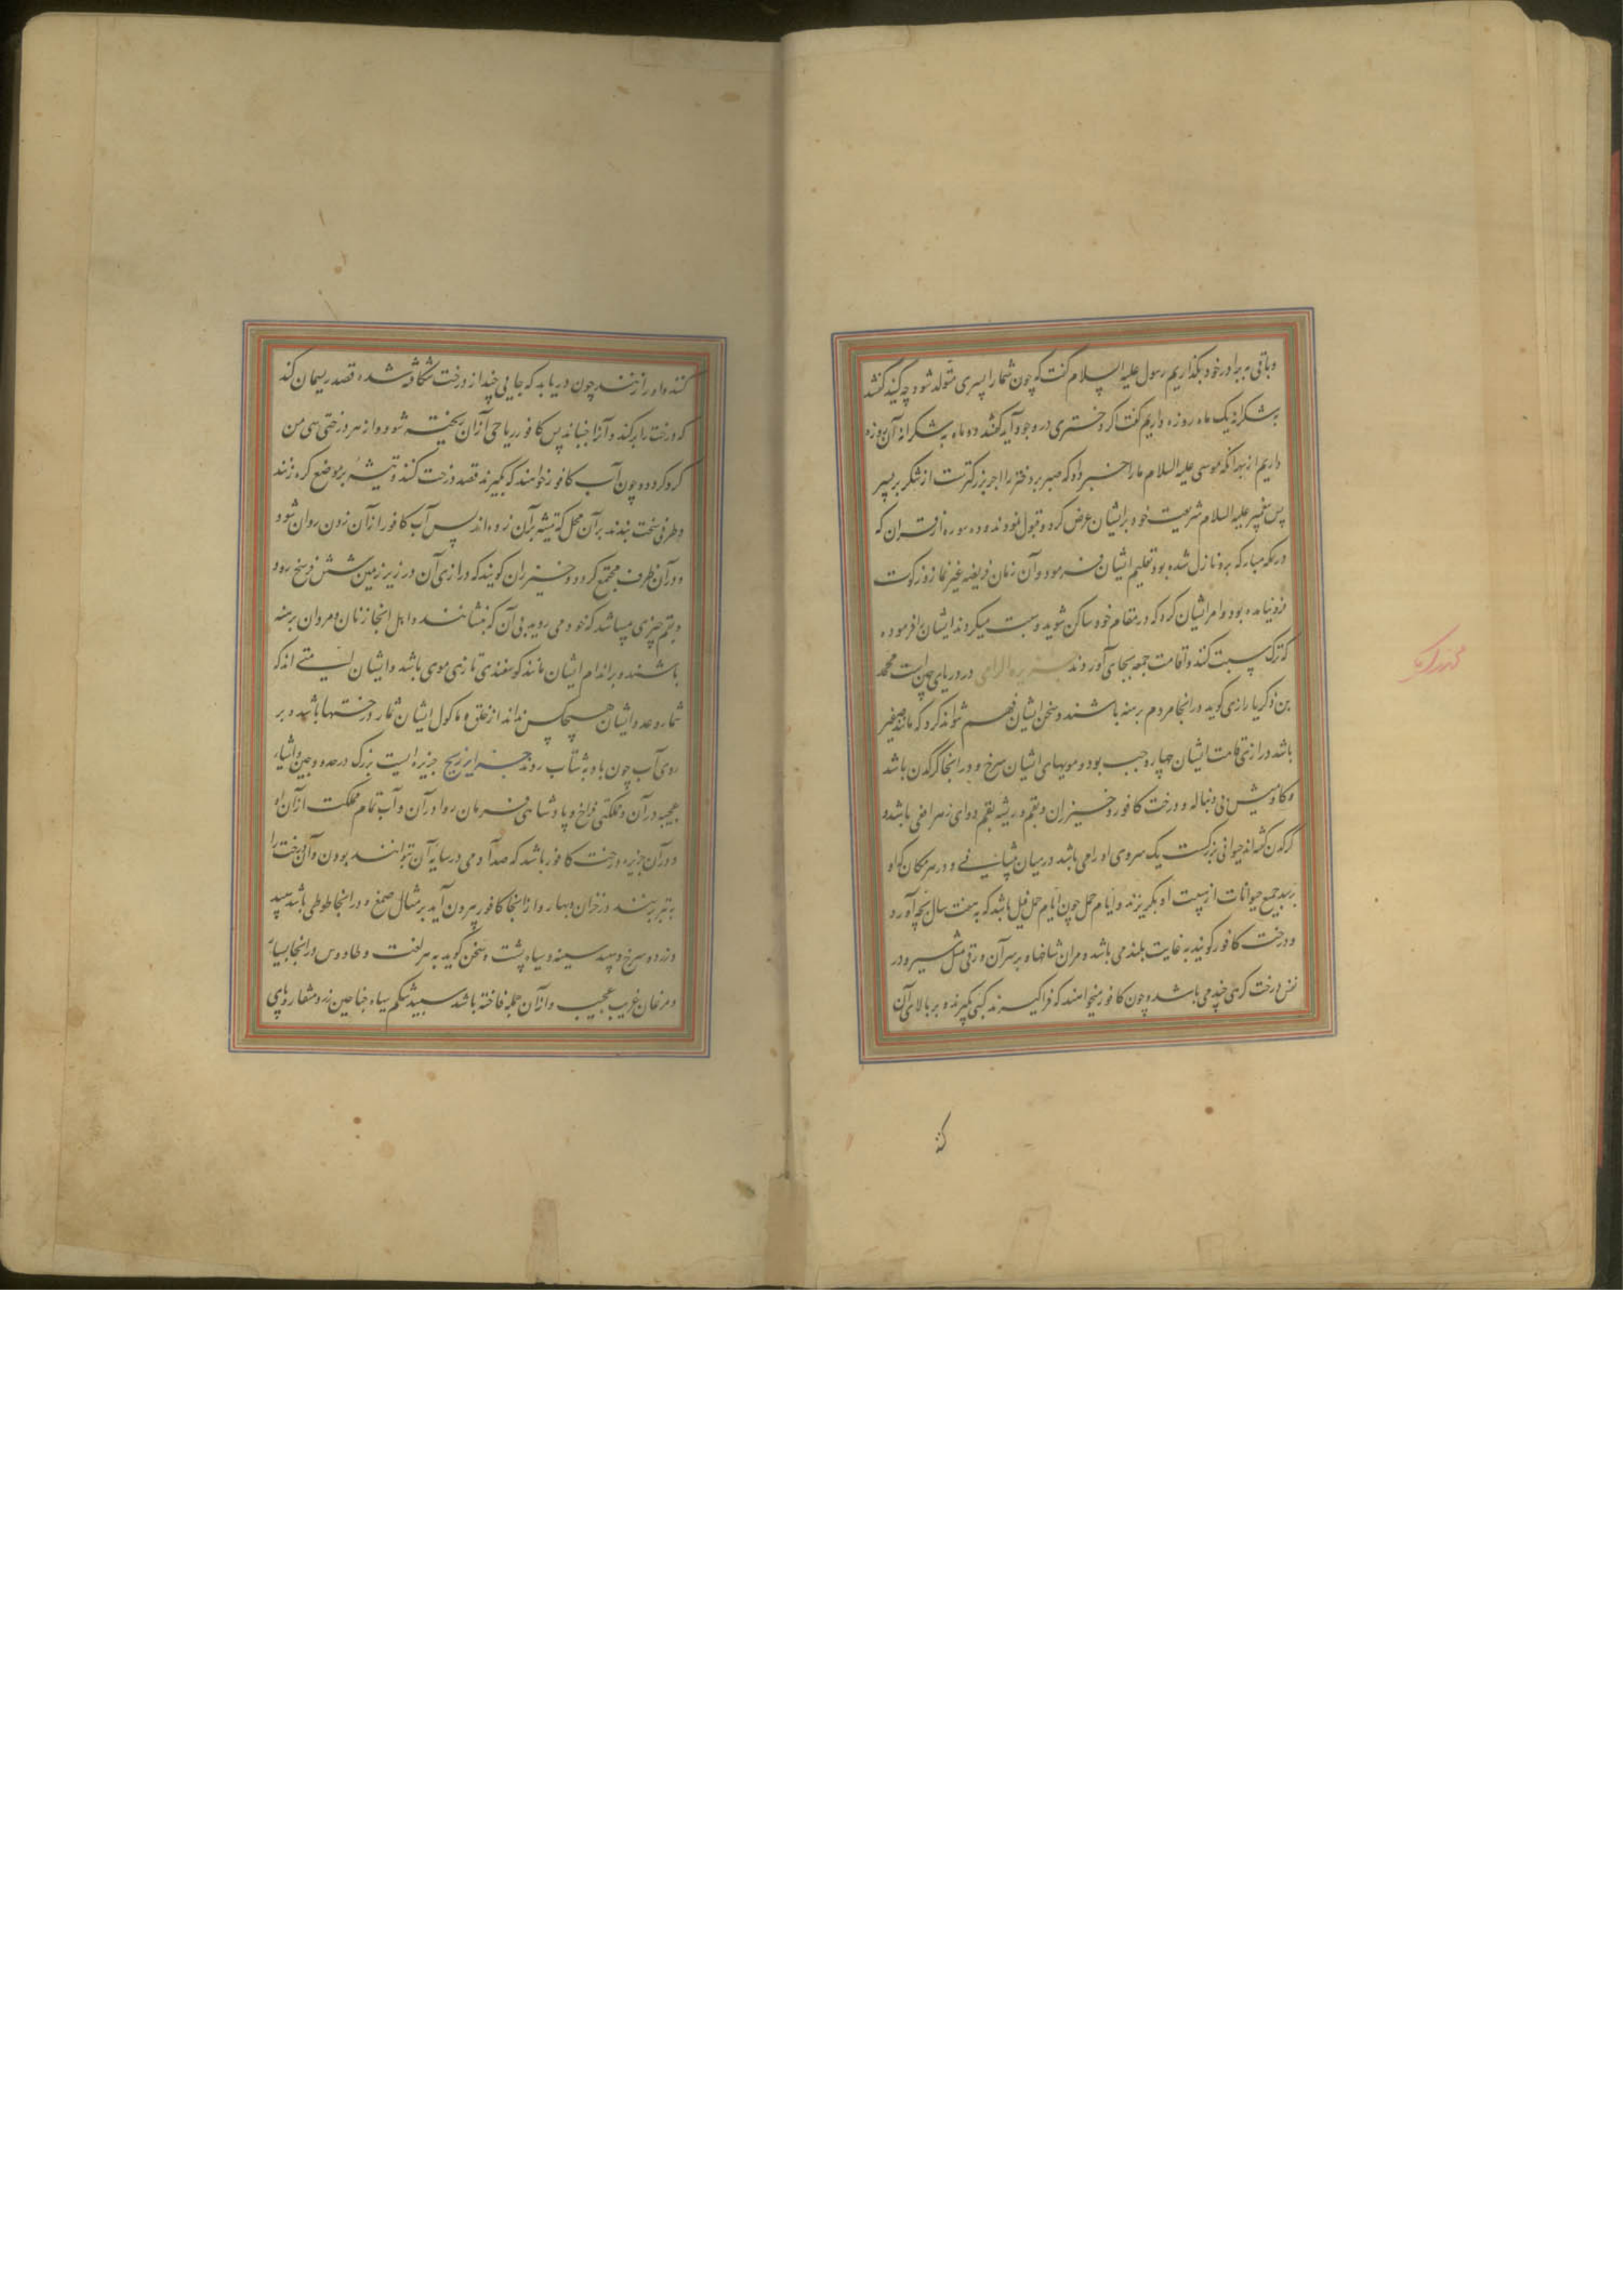 و باقی به برادر خود بگذاریم رسول علیه السلام گفت که چون شما را پسری متولد شود چه کنید گفتند
بشکرانه یک ماه روزه داریم گفت اگر دختری در وجود آید گفتند دو ماه به شکرانه آن روزه
داریم از بهر انکه موسی علیه السلام ما را خبر داد که صبر بر دختر را اجر بزرکترست از شکر بر پسر
پس پیغمبر علیه السلام شریعت خود بر ایشان عرض کرد و قبول نمودند و ده سوره از قران که
در مکه مبارکه برو نازل شده بود تعلیم ایشان فرمود و آن زمان فریضه غیر نماز و زکوت
فرو نیامده بود و امر ایشان کرد که در مقام خود ساکن شوید و سبت میکردند ایشان را فرموده
که ترک سبت کنند و اقامت جمعه بجای آوردند جزیره الرامی در دریای چین است محمد
بن ذکریا رازی کوید در انجا مردم برهنه باشند و سخن ایشان فهم نتواند کرد که مانند صفیر
باشد درازی قامت ایشان چهار وجب بود و مویهای ایشان سرخ و در انجا کرگدن باشد
و کاومیش بی دنباله و درخت کافور و خیزران و بقم و ریشه بقم دوای زهر افعی باشد و
کرکدن کفته‌اند حیوانی بزرکست یک سروی او را می باشد در میان پیشانی و در هر مکان که او
برسد جمیع حیوانات از هیبت او بگریزند و ایام حمل چون ایام حمل فیل باشد که به هفت سال بچه آورد
و درخت کافور کویند به غایت بلند می باشد و مر آن شاخها و بر سر آن ورقی مثل سیر و در
نفس درخت کرهی چند می باشد و چون کافور میخواهند که فراکیرند کبی بگیرند و بر بالای آن
کند
کنند و او را زنند چون دریابد که جایی چند از درخت شکافه شده قصد ریسمان کند
که درخت را برکند و آنرا بجنباند پس کافور ریاحی از آن ریخته شود و از هر درختی سی من
کرد کردد و چون آب کافور خواهند که بگیرند قصد درخت کنند و تیشه بر موضع کره زنند
و ظرفی سخت بندند بر آن محل که تیشه بر آن زده‌اند پس آب کافور از آن زدن روان شود
و در آن ظرف مجتمع کردد و خیزران کویند که درازی آن در زیر زمین شش فرسخ رود
و بقم چیزی میباشد که خود می روید بی آن که بنشانند و اهل انجا از زنان و مردان برهنه
باشند و بر اندام ایشان مانند کوسفندی تازی موی باشد و ایشان امتی اند که
شمار و عدد ایشان هیچکس نداند از خلق و ماکول ایشان ثمار درختها باشد و بر
روی آب چون باد به شتاب روند جزایر زبج جزیره ایست بزرک در حدود چین و اشیاء
عجیبه در آن و مملکتی فراخ و پادشاهی فرمان روا در آن و آب تمام مملکت از آن او
و در آن جزیره درخت کافور باشد که صد آدمی در سایه آن توانند بودن و آن درخت را
به تبر برند در خزان و بهار و از انجا کافور بیرون آید بر مثال صمغ و در انجا طوطی باشد سپید
و زرد و سرخ و سپید سینه و سیاه پشت و سخن کوید به هر لغت و طاووس در انجا بسیار
و مرغان غریب عجیب و از آن جمله فاخته باشد سپید شکم سیاه جناحین زرد منقار و پای